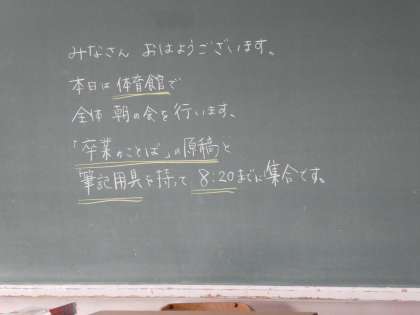 みなさん おはようございます。
本日は 体育館で
全体 朝の会を行います。
「卒業のことば」の原稿と
筆記用具を持って 8:20までに集合です。